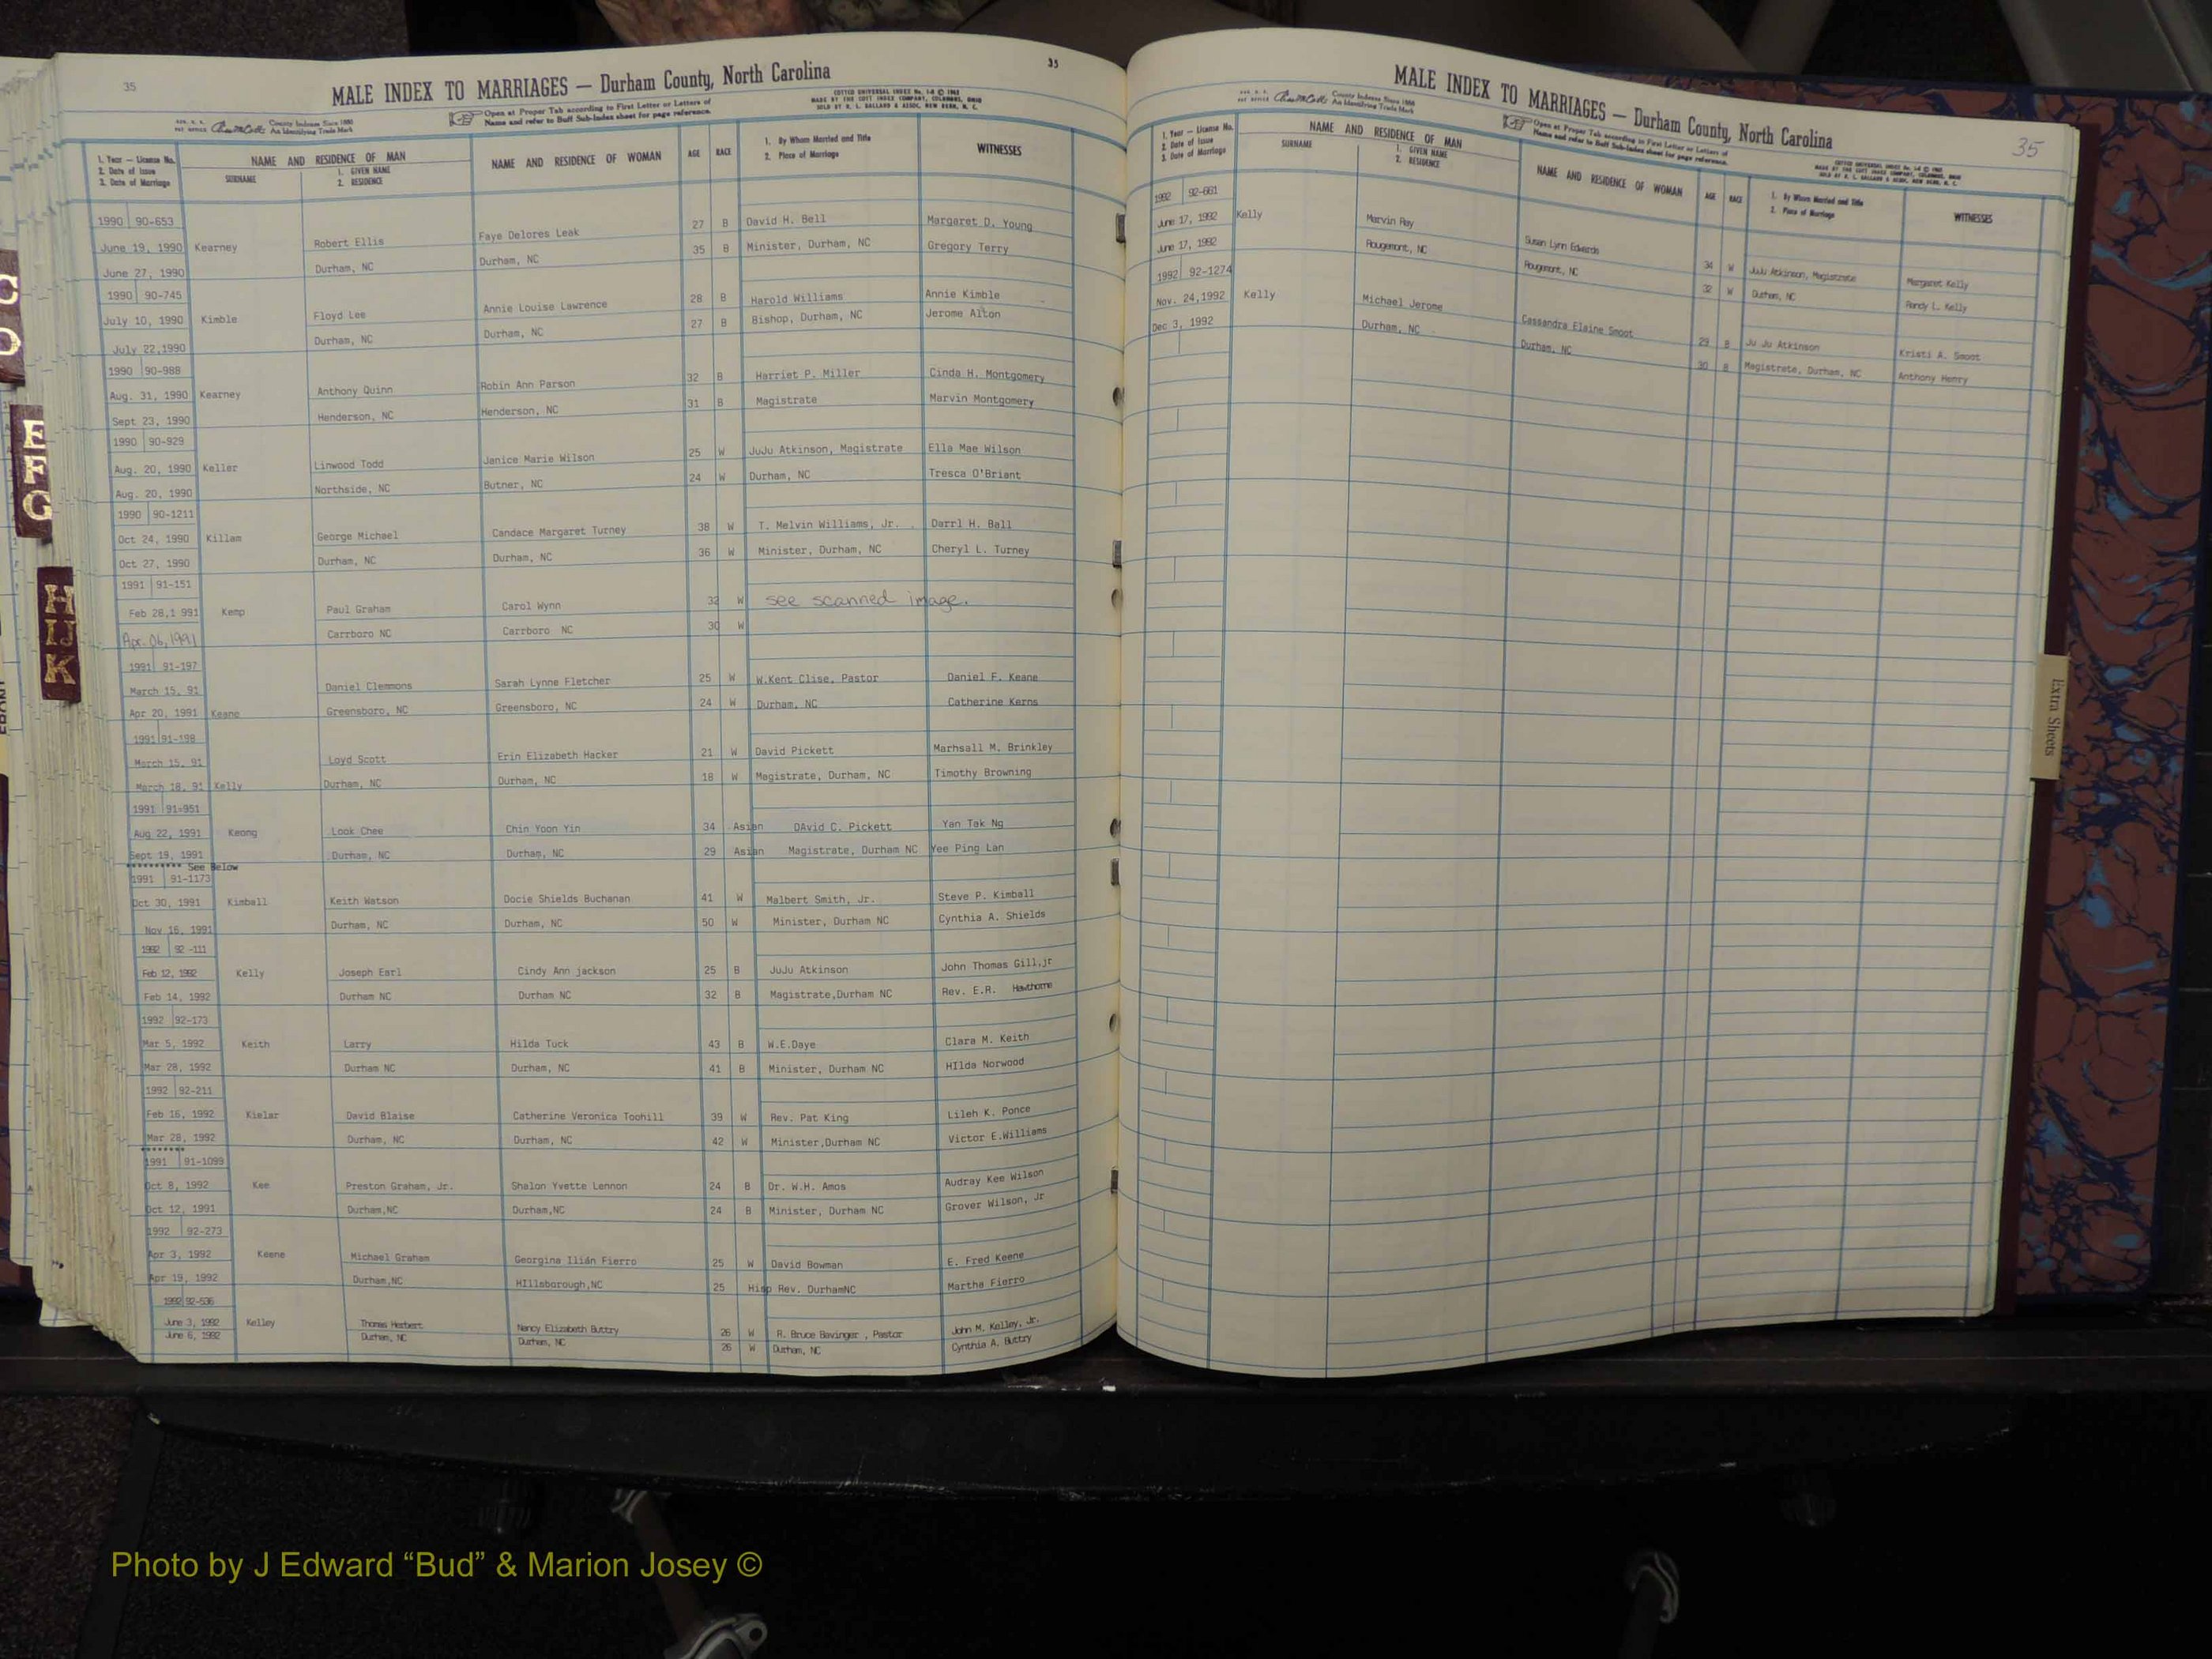 35
35
MALE INDEX TO MARRIAGES — Durham County, North Carolina
County Indexes Since 1888
An Identifying Trade Mark
Open at Proper Tab according to First Letter or Letters of
Name and refer to Buff Sub-Index sheet for page reference.
COTTED UNIVERSAL INDEX No. 1-8 © 1963
MADE BY THE COTT INDEX COMPANY, COLUMBUS, OHIO
SOLD BY O. L. BALLARD & ASSOC. NEW BERN, N. C.
1. Year — License No.
2. Date of Issue
3. Date of Marriage
NAME AND RESIDENCE OF MAN
SURNAME
1. GIVEN NAME
2. RESIDENCE
NAME AND RESIDENCE OF WOMAN
AGE
RACE
1. By Whom Married and Title
2. Place of Marriage
WITNESSES
1990 90-653
June 19, 1990 Kearney Robert Ellis Faye Delores Leak 27 B David H. Bell Margaret D. Young
June 27, 1990 Durham, NC Durham, NC 35 B Minister, Durham, NC Gregory Terry
1990 90-745
July 10, 1990 Kimble Floyd Lee Annie Louise Lawrence 28 B Harold Williams Annie Kimble
July 22,1990 Durham, NC Durham, NC 27 B Bishop, Durham, NC Jerome Alton
1990 90-988
Aug. 31, 1990 Kearney Anthony Quinn Robin Ann Parson 32 B Harriet P. Miller Cinda H. Montgomery
Sept 23, 1990 Henderson, NC Henderson, NC 31 B Magistrate Marvin Montgomery
1990 90-929
Aug. 20, 1990 Keller Linwood Todd Janice Marie Wilson 25 W JuJu Atkinson, Magistrate Ella Mae Wilson
Aug. 20, 1990 Northside, NC Butner, NC 24 W Durham, NC Tresca O'Briant
1990 90-1211
Oct 24, 1990 Killam George Michael Candace Margaret Turney 38 W T. Melvin Williams, Jr. Darrl H. Ball
Oct 27, 1990 Durham, NC Durham, NC 36 W Minister, Durham, NC Cheryl L. Turney
1991 91-151
Feb 28,1 991 Kemp Paul Graham Carol Wynn 32 W see scanned image.
Apr. 06, 1991 Carrboro NC Carrboro NC 30 W
1991 91-197
March 15, 91 Daniel Clemmons Sarah Lynne Fletcher 25 W W.Kent Clise, Pastor Daniel F. Keane
Apr 20, 1991 Keane Greensboro, NC Greensboro, NC 24 W Durham, NC Catherine Kerns
1991 91-198
March 15, 91 Loyd Scott Erin Elizabeth Hacker 21 W David Pickett Marhsall M. Brinkley
March 18, 91 Kelly Durham, NC Durham, NC 18 W Magistrate, Durham, NC Timothy Browning
1991 91-951
Aug 22, 1991 Keong Look Chee Chin Yoon Yin 34 Asian DAvid C. Pickett Yan Tak Ng
Sept 19, 1991 Durham, NC Durham, NC 29 Asian Magistrate, Durham NC Yee Ping Lan
********** See Below
1991 91-1173
Oct 30, 1991 Kimball Keith Watson Docie Shields Buchanan 41 W Malbert Smith, Jr. Steve P. Kimball
Nov 16, 1991 Durham, NC Durham, NC 50 W Minister, Durham NC Cynthia A. Shields
1992 92 -111
Feb 12, 1992 Kelly Joseph Earl Cindy Ann jackson 25 B JuJu Atkinson John Thomas Gill,jr
Feb 14, 1992 Durham NC Durham NC 32 B Magistrate,Durham NC Rev. E.R. Hawthorne
1992 92-173
Mar 5, 1992 Keith Larry Hilda Tuck 43 B W.E.Daye Clara M. Keith
Mar 28, 1992 Durham NC Durham, NC 41 B Minister, Durham NC HIlda Norwood
1992 92-211
Feb 16, 1992 Kielar David Blaise Catherine Veronica Toohill 39 W Rev. Pat King Lileh K. Ponce
Mar 28, 1992 Durham, NC Durham, NC 42 W Minister,Durham NC Victor E.Williams
********
1991 91-1099
Oct 8, 1992 Kee Preston Graham, Jr. Shalon Yvette Lennon 24 B Dr. W.H. Amos Audray Kee Wilson
Oct 12, 1991 Durham,NC Durham,NC 24 B Minister, Durham NC Grover Wilson, Jr
1992 92-273
Apr 3, 1992 Keene Michael Graham Georgina Ilián Fierro 25 W David Bowman E. Fred Keene
Apr 19, 1992 Durham,NC HIllsborough,NC 25 Hisp Rev. DurhamNC Martha Fierro
1992 92-536
June 3, 1992 Kelley Thomas Herbert Nancy Elizabeth Buttry 26 W R. Bruce Bavinger , Pastor John M. Kelley, Jr.
June 6, 1992 Durham, NC Durham, NC 26 W Durham, NC Cynthia A. Buttry
MALE INDEX TO MARRIAGES — Durham County, North Carolina
35
County Indexes Since 1888
An Identifying Trade Mark
Open at Proper Tab according to First Letter or Letters of
Name and refer to Buff Sub-Index sheet for page reference.
1. Year — License No.
2. Date of Issue
3. Date of Marriage
NAME AND RESIDENCE OF MAN
SURNAME
1. GIVEN NAME
2. RESIDENCE
NAME AND RESIDENCE OF WOMAN
AGE
RACE
1. By Whom Married and Title
2. Place of Marriage
WITNESSES
1992 92-661
June 17, 1992 Kelly Marvin Ray Susan Lynn Edwards 34 W JuJu Atkinson, Magistrate Margaret Kelly
June 17, 1992 Rougemont, NC Rougemont, NC 32 W Durham, NC Randy L. Kelly
1992 92-1274
Nov. 24,1992 Kelly Michael Jerome Cassandra Elaine Smoot 29 B Ju Ju Atkinson Kristi A. Smoot
Dec 3, 1992 Durham, NC Durham, NC 30 B Magistrate, Durham, NC Anthony Henry
C
D
E
F
G
H
IJ
K
Extra Sheets
Photo by J Edward “Bud” & Marion Josey ©